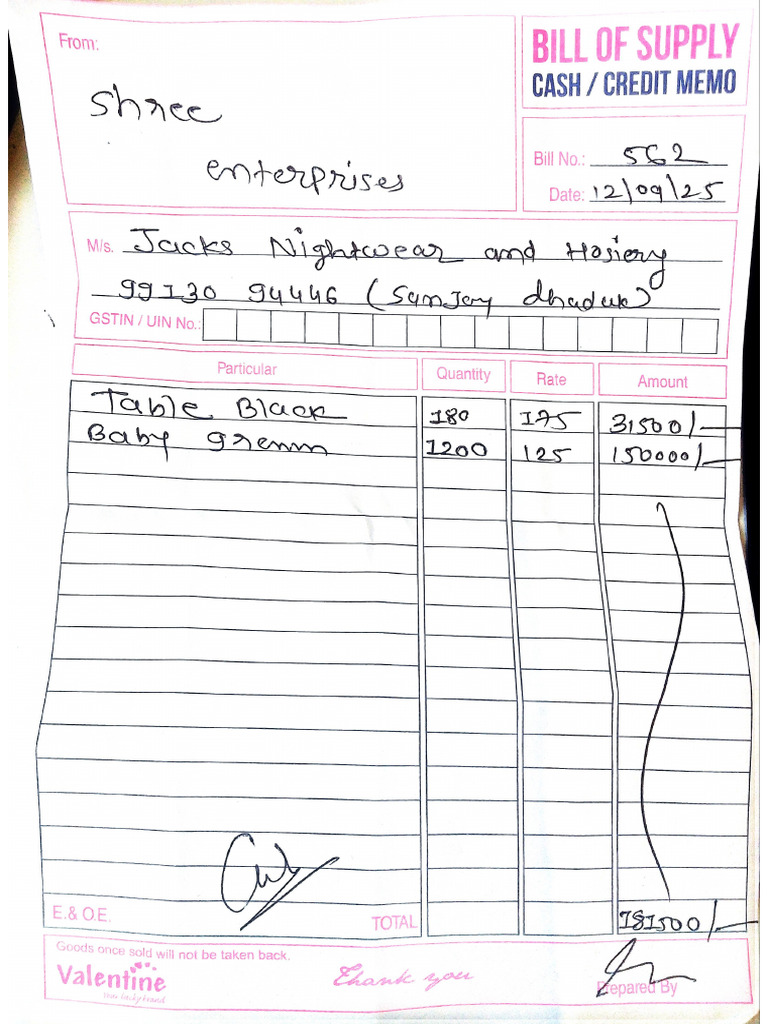 From:
BILL OF SUPPLY
CASH / CREDIT MEMO
Shree
enterprises
Bill No.: 562
Date: 12/09/25
M/s. Jacks Nightwear and Hosiery
99130 94446 (Sanjay dhaduk)
GSTIN / UIN No.:
Particular Quantity Rate Amount
Table Black 180 175 31500/-
Baby gremm 1200 125 150000/-
E. & O.E. TOTAL 181500/-
Goods once sold will not be taken back.
Valentine Thank you Prepared By